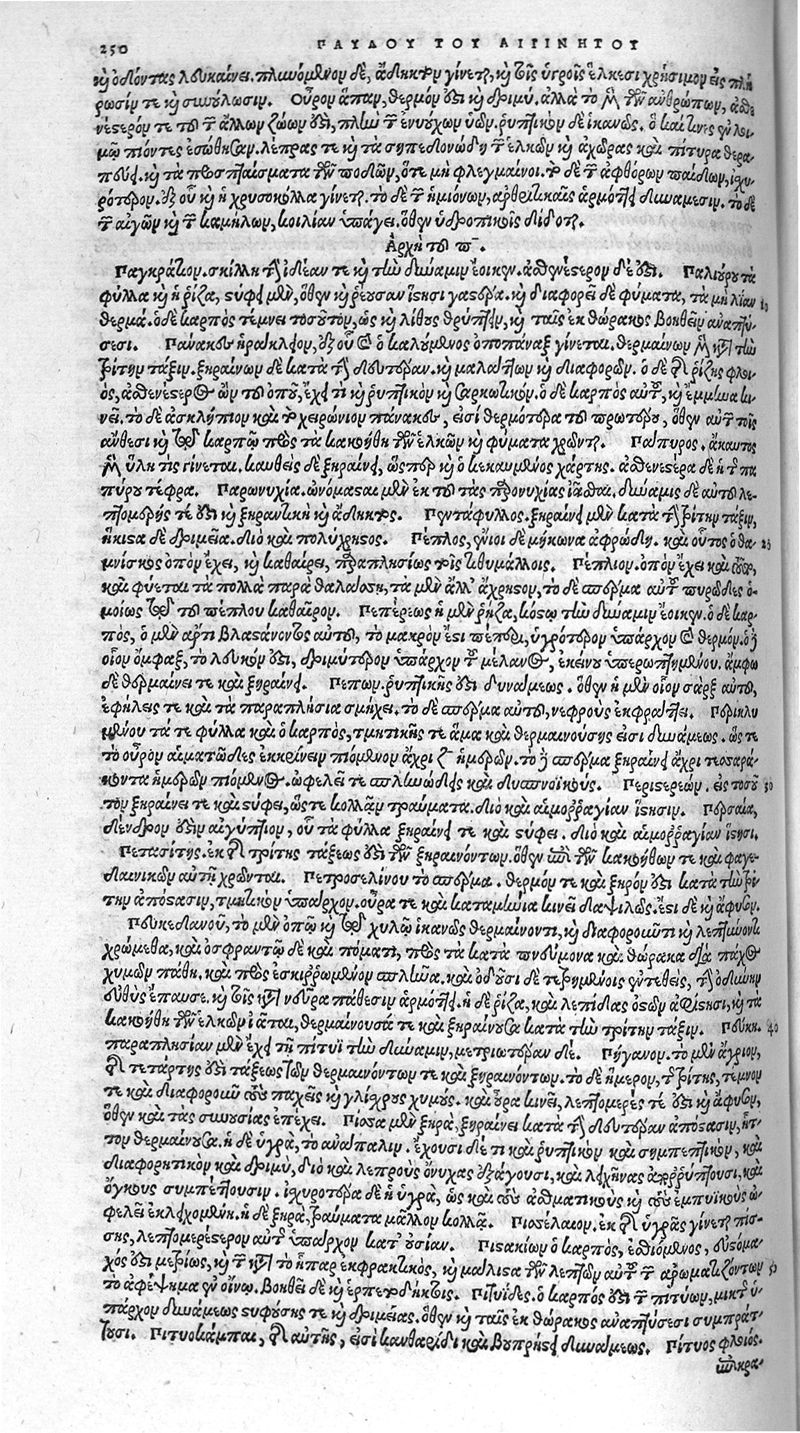 250 ΠΑΥΛΟΥ ΤΟΥ ΑΙΓΙΝΗΤΟΥ
ϗ ὀδόντας λευκαίνει. πλυνόμενον δὲ, ἄδηκτον γίνεται, ϗ τοῖς ὑγροῖς ἕλκεσι χρήσιμον εἰς πλή
ρωσίν τε ϗ συνούλωσιν. Οὖρον ἅπαν, θερμόν ἐστι ϗ δριμύ. ἀλλὰ τὸ μὲν τῶν ἀνθρώπων, ἀσθε
νέστερόν τε τοῦ τῶν ἄλλων ζώων ἐστὶ, πλὴν τῶν εὐνούχων ὑῶν. ῥυπτικὸν δὲ ἱκανῶς.
μῷ πιόντες ἐσώθησαν. λέπρας τε ϗ τὰ σηπεδονώδη τῶν ἑλκῶν ϗ ἀχῶρας καὶ πίτυρα θερα
πεύει. ϗ τὰ προσπταίσματα τῶν ποδῶν, ὅτε μὴ φλεγμαίνοι. τὸ δὲ τῶν ἀφθόρων παίδων, ἰσχυ
ρότερον. ἐξ οὗ ϗ ἡ χρυσοκόλλα γίνεται. τὸ δὲ τῶν ἡμιόνων, ἀρθριτικαῖς ἁρμόττει δυνάμεσιν. τὸ δὲ
τῶν αἰγῶν ϗ τῶν καμήλων, κοιλίαν ὑπάγει. ὅθεν ὑδρωπικοῖς δίδοται.
Ἀρχὴ τοῦ π.
Παγκράτιον. σκίλλῃ τὴν ἰδέαν τε ϗ τὴν δύναμιν ἔοικεν. ἀσθενέστερον δέ ἐστι. Παλιούρου τὰ
φύλλα ϗ ἡ ῥίζα, στύφει μὲν, ὅθεν ϗ ῥέουσαν ἵστησι γαστέρα. ϗ διαφορεῖ δὲ φύματα, τὰ μὴ λίαν 10
θερμά. ὁ δὲ καρπὸς τέμνει τοσοῦτον, ὡς ϗ λίθους θρύπτειν, ϗ ταῖς ἐκ θώρακος βοηθεῖν ἀναπτύ-
σεσι. Πάνακες ἡράκλειον, ἐξ οὗ ὁ καλούμενος ὀποπάναξ γίνεται. θερμαίνων μὲν κατὰ τὴν
τρίτην τάξιν. ξηραίνων δὲ κατὰ τὴν δευτέραν. ϗ μαλάττων ϗ διαφορῶν. ὁ δὲ τῆς ῥίζης φλοι-
ὸς, ἀσθενέστερος ὢν τοῦ ὀποῦ, ἔχει τι ϗ ῥυπτικὸν ϗ σαρκωτικόν. ὁ δὲ καρπὸς αὐτῆς, ϗ ἔμμηνα κι-
νεῖ. τὸ δὲ ἀσκλήπιον καὶ τὸ χειρώνιον πάνακες, εἰσὶ θερμότερα τοῦ πρώτου, ὅθεν αὐτῶν τοῖς
ἄνθεσι ϗ τῷ καρπῷ πρὸς τὰ κακοήθη τῶν ἑλκῶν ϗ φύματα χρῶνται. Πάπυρος. ἄκαυστος
μὲν ὕλη τις γίνεται. καυθεὶς δὲ ξηραίνει, ὥσπερ ϗ ὁ κεκαυμένος χάρτης. ἀσθενεστέρα δὲ ἡ τῆς πα
πύρου τέφρα. Παρωνυχία. ὠνόμασται μὲν ἐκ τοῦ τὰς παρωνυχίας ἰᾶσθαι. δύναμις δὲ αὐτοῦ λε-
πτομερής τέ ἐστι ϗ ξηραντικὴ ϗ ἄδηκτος. Πεντάφυλλος. ξηραίνει μὲν κατὰ τὴν τρίτην τάξιν,
ἥκιστα δὲ δριμεῖα. διὸ καὶ πολύχρηστος. Πέπλος, ἔνιοι δὲ μήκωνα ἀφρώδη. καὶ οὗτος ὁ θα- 20
μνίσκος ὀπὸν ἔχει, ϗ καθαίρει, παραπλησίως τοῖς τιθυμάλλοις. Πέπλιον. ὀπὸν ἔχει καὶ αὐτὸ,
καὶ φύεται τὰ πολλὰ παρὰ θαλάσσῃ, τὰ μὲν ἄλλ' ἄχρηστον, τὸ δὲ σπέρμα αὐτοῦ πυρῶδες ὁ-
μοίως τῷ τοῦ πέπλου καθαῖρον. Πεπέρεως ἡ μὲν ῥίζα, κόστῳ τὴν δύναμιν ἔοικεν. ὁ δὲ καρ-
πὸς, ὁ μὲν ἄρτι βλαστάνοντος αὐτοῦ, τὸ μακρόν ἐστι πέπερι, ὑγρότερον ὑπάρχον ϗ θερμόν. ὁ δὲ
οἷον ὄμφαξ, τὸ λευκόν ἐστι, δριμύτερον ὑπάρχον τοῦ μέλανος, ἐκείνου ὑπερωπτημένου. ἄμφω
δὲ θερμαίνει τε καὶ ξηραίνει. Πέπων. ῥυπτικῆς ἐστι δυνάμεως. ὅθεν ἡ μὲν οἷον σὰρξ αὐτοῦ,
ἐφήλεις τε καὶ τὰ παραπλήσια σμήχει. τὸ δὲ σπέρμα αὐτοῦ, νεφροὺς ἐκφράττει. Περικλυ
μένου τά τε φύλλα καὶ ὁ καρπὸς, τμητικῆς τε ἅμα καὶ θερμαινούσης εἰσὶ δυνάμεως. ὥς τε
τὸ οὖρον αἱματῶδες ἐκκρίνειν πινόμενον ἄχρι ζ ἡμερῶν. τὸ δὲ σπέρμα ξηραίνει ἄχρι τεσσαρά-
κοντα ἡμερῶν πινόμενον. ὠφελεῖ τε σπληνώδεις καὶ δυσπνοϊκούς. Περιστερεών. εἰς τοσοῦ 30
τον ξηραίνει τε καὶ στύφει, ὥς τε κολλᾶν τραύματα. διὸ καὶ αἱμορραγίαν ἵστησιν. Περσαία,
δένδρον ἐστὶν αἰγύπτιον, οὗ τὰ φύλλα ξηραίνει τε καὶ στύφει. διὸ καὶ αἱμορραγίαν ἵστησι.
Πετασίτης. ἐκ τῆς τρίτης τάξεώς ἐστι τῶν ξηραινόντων. ὅθεν ἐπὶ τῶν κακοήθων τε καὶ φαγε-
δαινικῶν αὐτῇ χρῶνται. Πετροσελίνου τὸ σπέρμα. θερμόν τε καὶ ξηρόν ἐστι κατὰ τὴν τρί-
την ἀπόστασιν, τμητικὸν ὑπάρχον. οὖρά τε καὶ καταμήνια κινεῖ δαψιλῶς. ἔστι δὲ ϗ ἄφυσον.
Πευκεδανοῦ, τῷ μὲν ὀπῷ ϗ τῷ χυλῷ ἱκανῶς θερμαίνοντι, ϗ διαφοροῦντι ϗ λεπτύνοντι
χρώμεθα, καὶ ὀσφραντῷ δὲ καὶ πόματι, πρὸς τὰ κατὰ πνεύμονα καὶ θώρακα διὰ πάχος
χυμῶν πάθη. καὶ πρὸς ἐσκιῤῥωμένον σπλῆνα. καὶ ὀδοῦσι δὲ τετρημένοις ἐντεθεὶς, τὴν ὀδύνην
εὐθὺς ἔπαυσε. ϗ τοῖς κατὰ νεῦρα πάθεσιν ἁρμόττει. ἡ δὲ ῥίζα, καὶ λεπίδας ὀστῶν ἀφίστησι, ϗ τὰ
κακοήθη τῶν ἑλκῶν ἰᾶται, θερμαίνουσά τε καὶ ξηραίνουσα κατὰ τὴν τρίτην τάξιν. Πεύκη. 40
παραπλησίαν μὲν ἔχει τῇ πίτυϊ τὴν δύναμιν, μετριωτέραν δέ. Πήγανον. τὸ μὲν ἄγριον,
τῆς τετάρτης ἐστὶ τάξεως τῶν θερμαινόντων τε καὶ ξηραινόντων. τὸ δὲ ἥμερον, τῆς τρίτης, τέμνον
τε καὶ διαφοροῦν τοὺς παχεῖς ϗ γλίσχρους χυμούς. καὶ οὖρα κινεῖ, λεπτομερές τέ ἐστι ϗ ἄφυσον,
ὅθεν καὶ τὰς συνουσίας ἐπέχει. Πίσσα μὲν ξηρὰ, ξηραίνει κατὰ τὴν δευτέραν ἀπόστασιν, ἧτ-
τον θερμαίνουσα. ἡ δὲ ὑγρὰ, τὸ ἀνάπαλιν. ἔχουσι δέ τι καὶ ῥυπτικὸν καὶ συμπεπτικὸν, καὶ
διαφορητικὸν καὶ δριμὺ, διὸ καὶ λεπροὺς ὄνυχας ἐξάγουσι, καὶ λειχῆνας ἀποῤῥύπτουσι, καὶ
ὄγκους συμπέττουσιν. ἰσχυροτέρα δὲ ἡ ὑγρὰ, ὡς καὶ τοὺς ἀσθματικοὺς ϗ τοὺς ἐμπυϊκοὺς ὠ-
φελεῖ ἐκλειχομένη. ἡ δὲ ξηρὰ, τραύματα μᾶλλον κολλᾷ. Πισσέλαιον. ἐκ τῆς ὑγρᾶς γίνεται πίσ-
σης, λεπτομερέστερον αὐτῆς ὑπάρχον κατ' οὐσίαν. Πιστακίων ὁ καρπὸς, ἐσθιόμενος, εὐστόμα-
χός ἐστι μετρίως, ϗ τῶν κατὰ τὸ ἧπαρ ἐκφρακτικὸς, ϗ μάλιστα τῶν λεπτῶν αὐτῶν τῶν ἀρωματιζόντων 50
τὸ ἀφέψημα ἐν οἴνῳ. βοηθεῖ δὲ ϗ ἑρπετοδήκτοις. Πιτυΐδες. ὁ καρπός ἐστι τῶν πιτύων, μικτῆς ὑ-
πάρχον δυνάμεως στυφούσης τε ϗ δριμείας. ὅθεν ϗ ταῖς ἐκ θώρακος ἀναπτύσεσι συμπράτ-
τουσι. Πιτυοκάμπαι, τῆς αὐτῆς, εἰσὶ κανθαρίδι καὶ βουπρήστει δυνάμεως. Πίτυος φλοιός.
ἐπικρα-